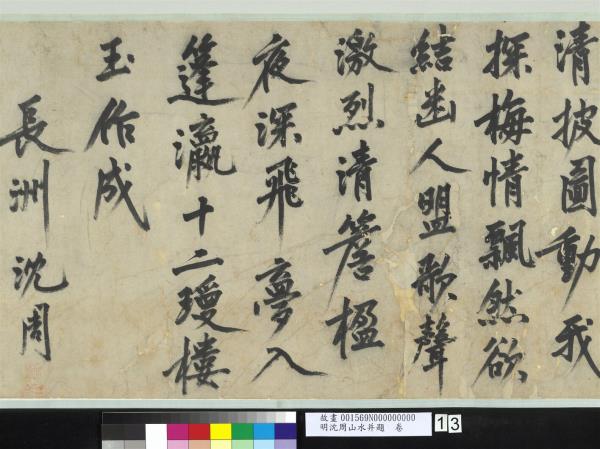 清披圖動我
探梅情飄然欲
結幽人盟歌聲
激烈清簷楹
夜深飛夢入
篷瀛十二瓊樓
玉作成
長洲沈周
故畫 001569N000000000
明沈周山水并題 卷
13